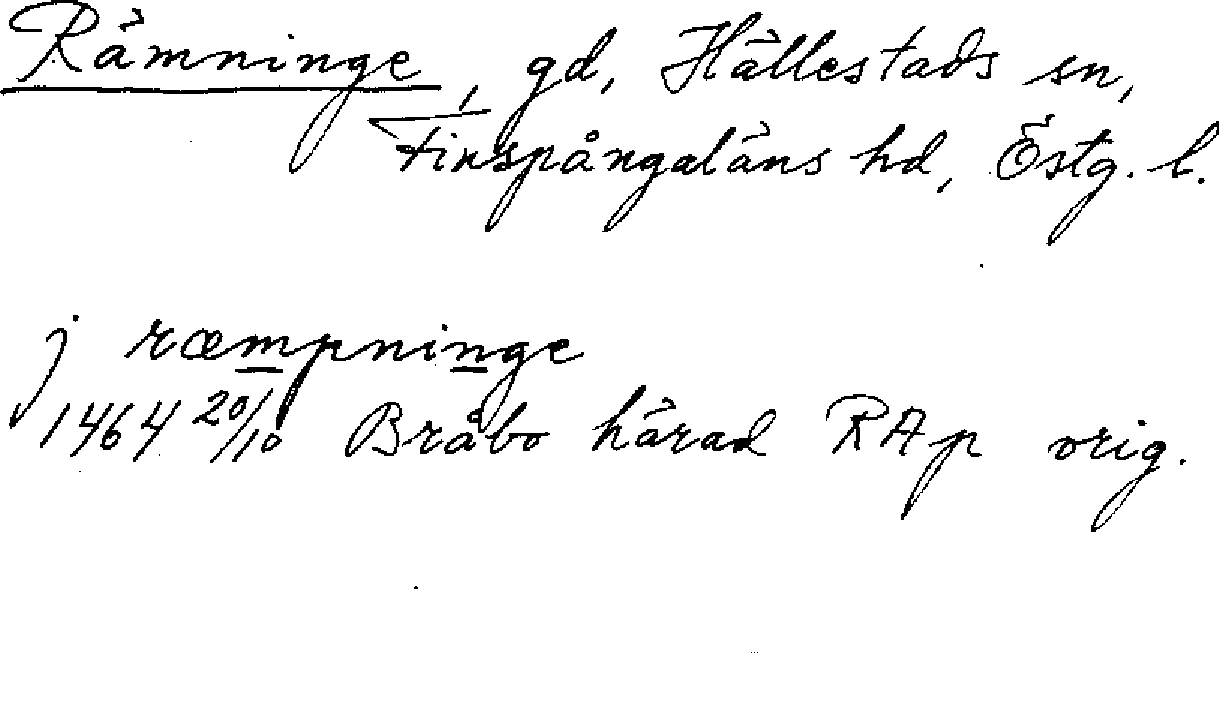 Rämninge, gd, Hällestads sn,
Finspångaläns hd, Östg. l.
j ræmpninge
1464 20/10 Bråbo härad RAp orig.